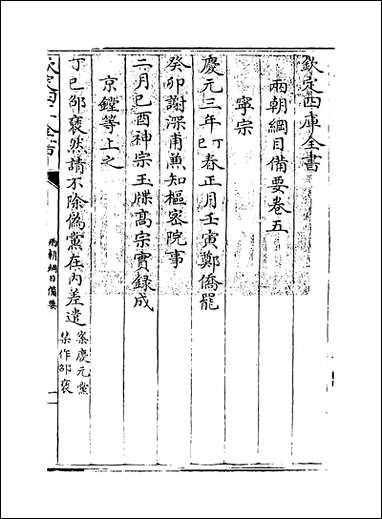 欽定四庫全書
兩朝綱目備要卷五
寧宗
慶元三年丁巳春正月壬寅鄭僑罷
癸卯謝深甫兼知樞密院事
二月己酉神宗玉牒高宗實録成
京鏜等上之
丁巳邵褒然請不除偽黨在内差遣案慶元黨
禁作邵褒
欽定四庫全書
兩朝綱目備要
一